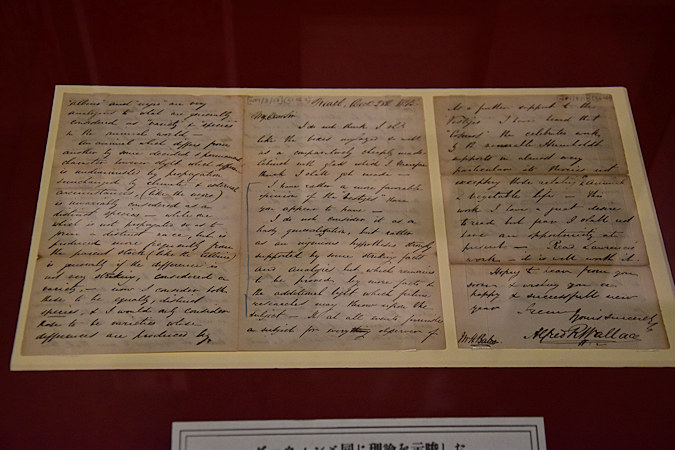 analogous to what are generally
considered as "variety" & species
in the animal world —
An animal which differs from
another by some decided & permanent
character however slight which
is undiminished by propagation
unchanged by climate & external
circumstances,
is universally considered as a
distinct species — while one
which is not propagated so as to
form a distinct race, but is
produced more frequently from
the parent stock (like the Albino)
is generally if the difference is
not very striking, considered a
variety, — Now I would consider both
these to be equally distinct
species, & I would only consider
those to be varieties whose
differences are produced by
Neath, Decr 28th
My dear Sir
I do not think I
like the
as a comparatively cheaply made
Cabinet with glass which I
think I shall get made —
I have rather a more favorable
opinion of the "Vestiges" than
you appear to have —
I do not consider it as a
hasty generalisation, but rather
as an ingenious hypothesis strongly
supported by some striking facts
and analogies but which remains
to be proved by more facts &
the additional light which future
researches may throw upon the
subject — It at all events furnishes
a subject for every observer of
As a further support to the
"Vestiges" I have heard that
"Cosmos" the celebrated work
of the venerable Humboldt
supports in almost every
particular its theories not
excepting those relating to animal
& vegetable life — This
work I have a great desire
to read, but fear I shall not
have an opportunity at
present — Read Lawrence's
work — it is well worth it.
Hoping to hear from you
soon, & wishing you an
happy & successful new
year
I remain
Yours sincerely
Alfred R Wallace
W H Bates
同に理論を示唆した